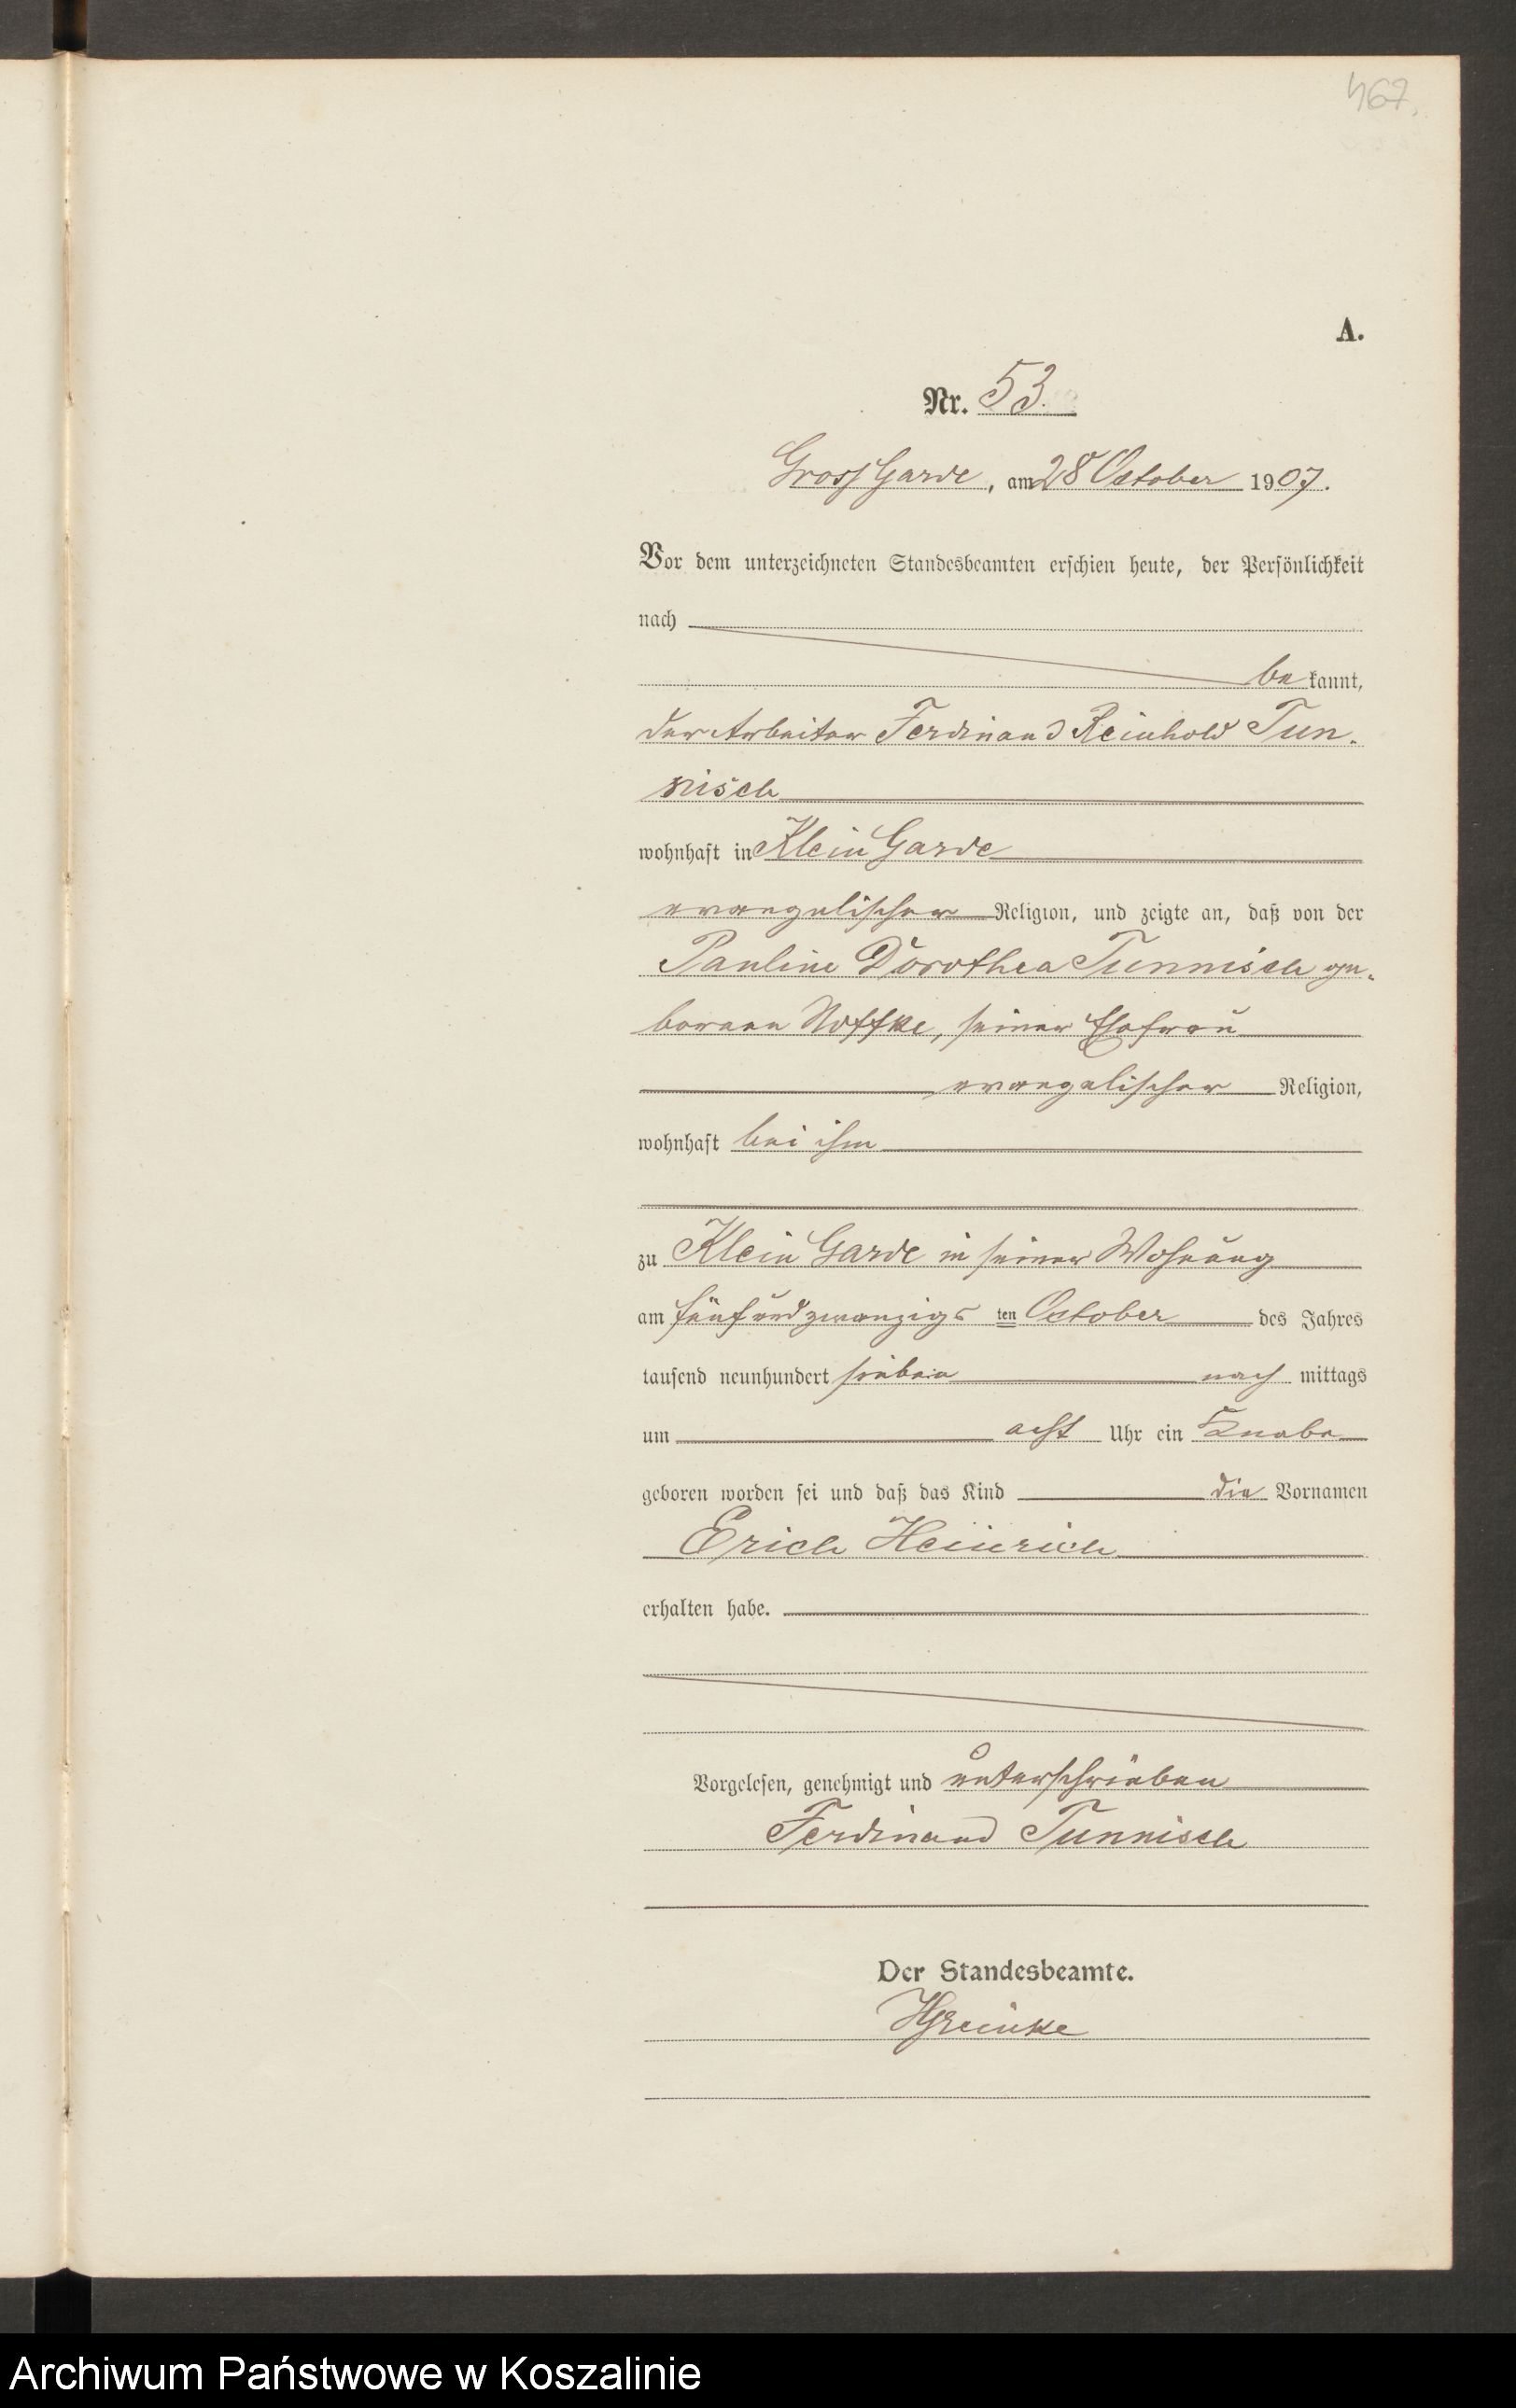 467.
A.
Nr. 53.
Gross Garde, am 28 October 1907.
Vor dem unterzeichneten Standesbeamten erschien heute, der Persönlichkeit
nach
bekannt,
der Arbeiter Ferdinand Reinhold Tun-
nisch
wohnhaft in Klein Garde
evangelischer Religion, und zeigte an, daß von der
Pauline Dorothea Tunnisch ge-
borene Noffke, seiner Ehefrau
evangelischer Religion,
wohnhaft bei ihm
zu Klein Garde in seiner Wohnung
am fünfundzwanzigs ten October des Jahres
tausend neunhundert sieben nach mittags
um acht Uhr ein Knabe
geboren worden sei und daß das Kind die Vornamen
Erich Heinrich
erhalten habe.
Vorgelesen, genehmigt und unterschrieben
Ferdinand Tunnisch
Der Standesbeamte.
Archiwum Państwowe w Koszalinie